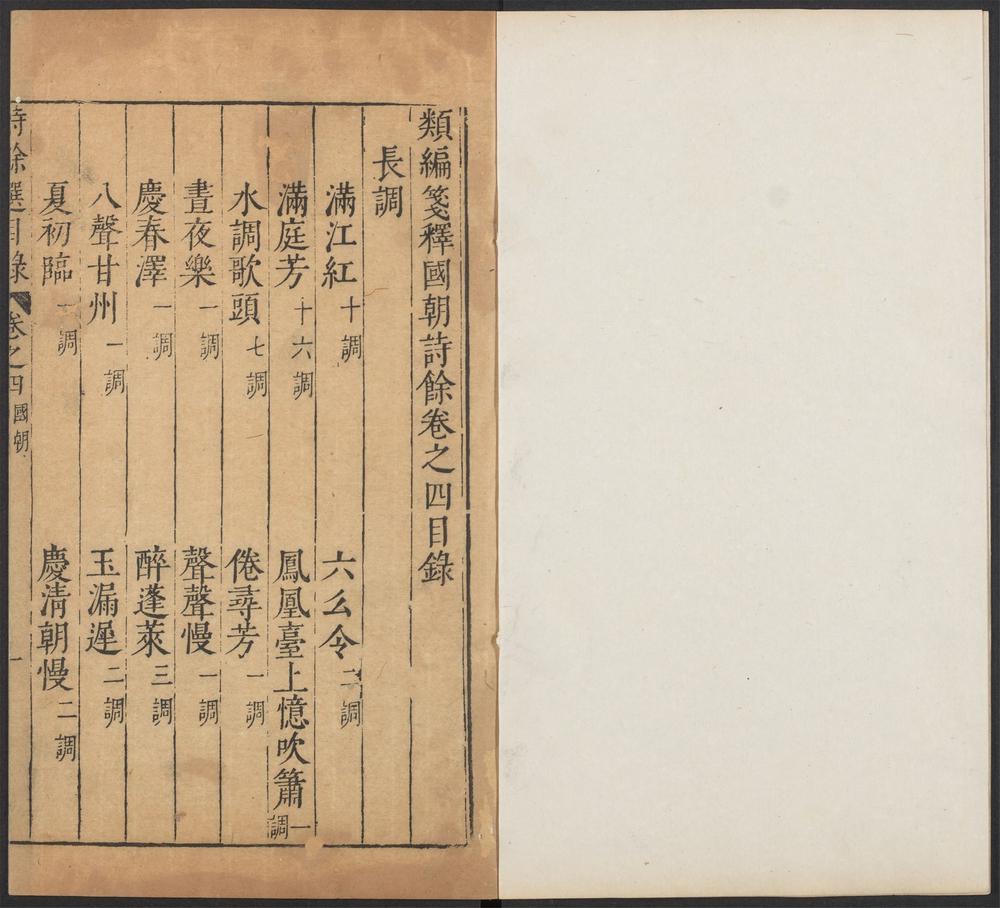 類編箋釋國朝詩餘卷之四目錄
長調
滿江紅 十調 六么令 二調
滿庭芳 十六調 鳳凰臺上憶吹簫 一調
水調歌頭 七調 倦尋芳 一調
晝夜樂 一調 聲聲慢 一調
慶春澤 一調 醉蓬萊 三調
八聲甘州 一調 玉漏遲 二調
夏初臨 一調 慶清朝慢 二調
詩餘選目錄 卷之四 國朝 一